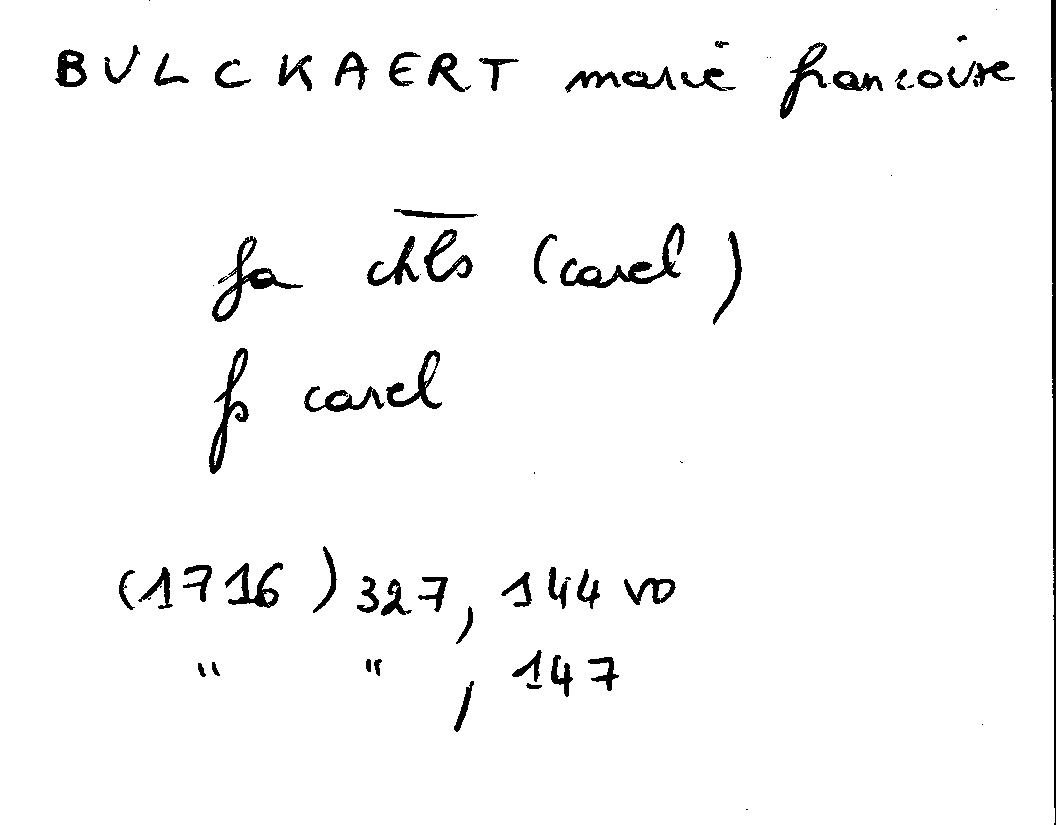 BULCKAERT marie francoise
fa chls (carel)
fs carel
(1716) 327, 144 vo
" " , 147